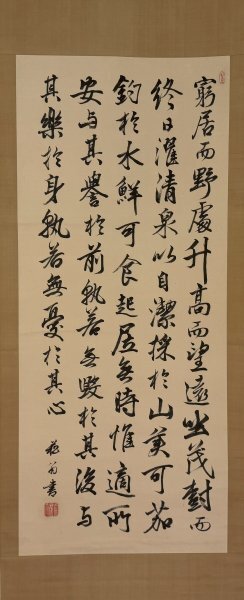 窮居而野處升高而望遠坐茂樹而
終日濯清泉以自潔採於山美可茹
釣於水鮮可食起居無時惟適所
安与其譽於前孰若無毀於其後与
其樂於身孰若無憂於其心
翁書